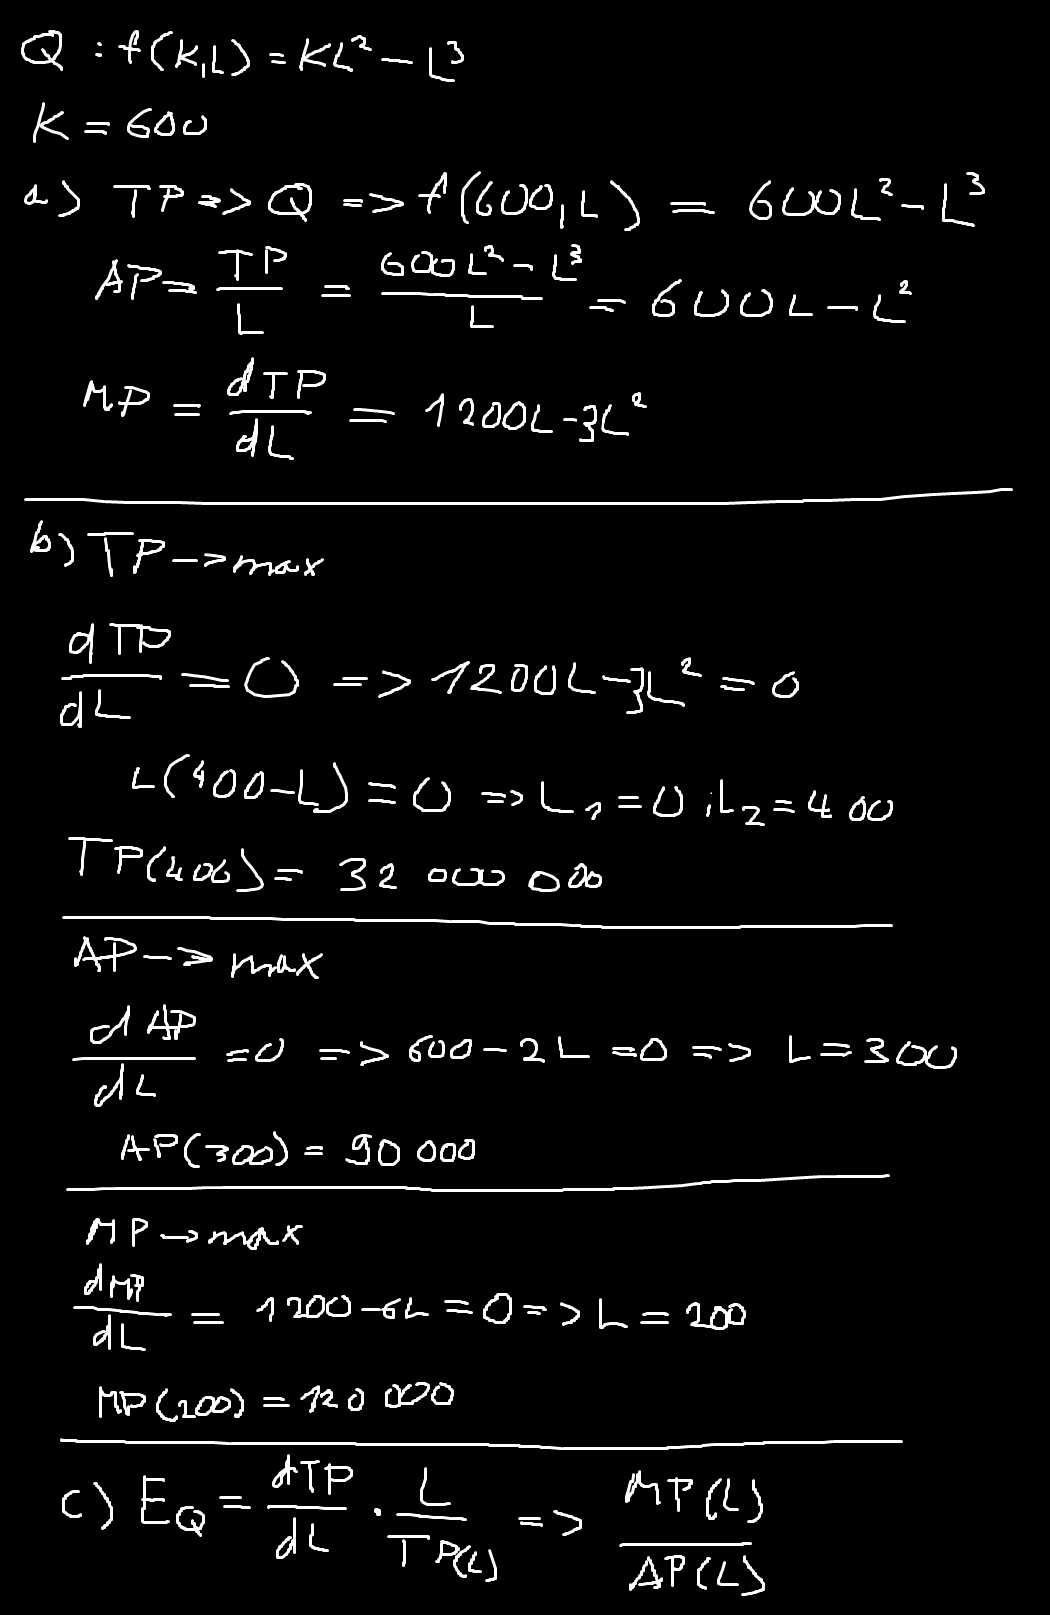 Q : f(K,L) = KL² - L³
K = 600
a) TP => Q => f(600,L) = 600L² - L³
AP = TP/L = (600L² - L³)/L = 600L - L²
MP = dTP/dL = 1200L - 3L²
b) TP -> max
dTP/dL = 0 => 1200L - 3L² = 0
L(400-L) = 0 => L₁ = 0 ; L₂ = 400
TP(400) = 32 000 000
AP -> max
dAP/dL = 0 => 600 - 2L = 0 => L = 300
AP(300) = 90 000
MP -> max
dMP/dL = 1200 - 6L = 0 => L = 200
MP(200) = 120 000
c) E_Q = dTP/dL · L/TP(L) => MP(L)/AP(L)